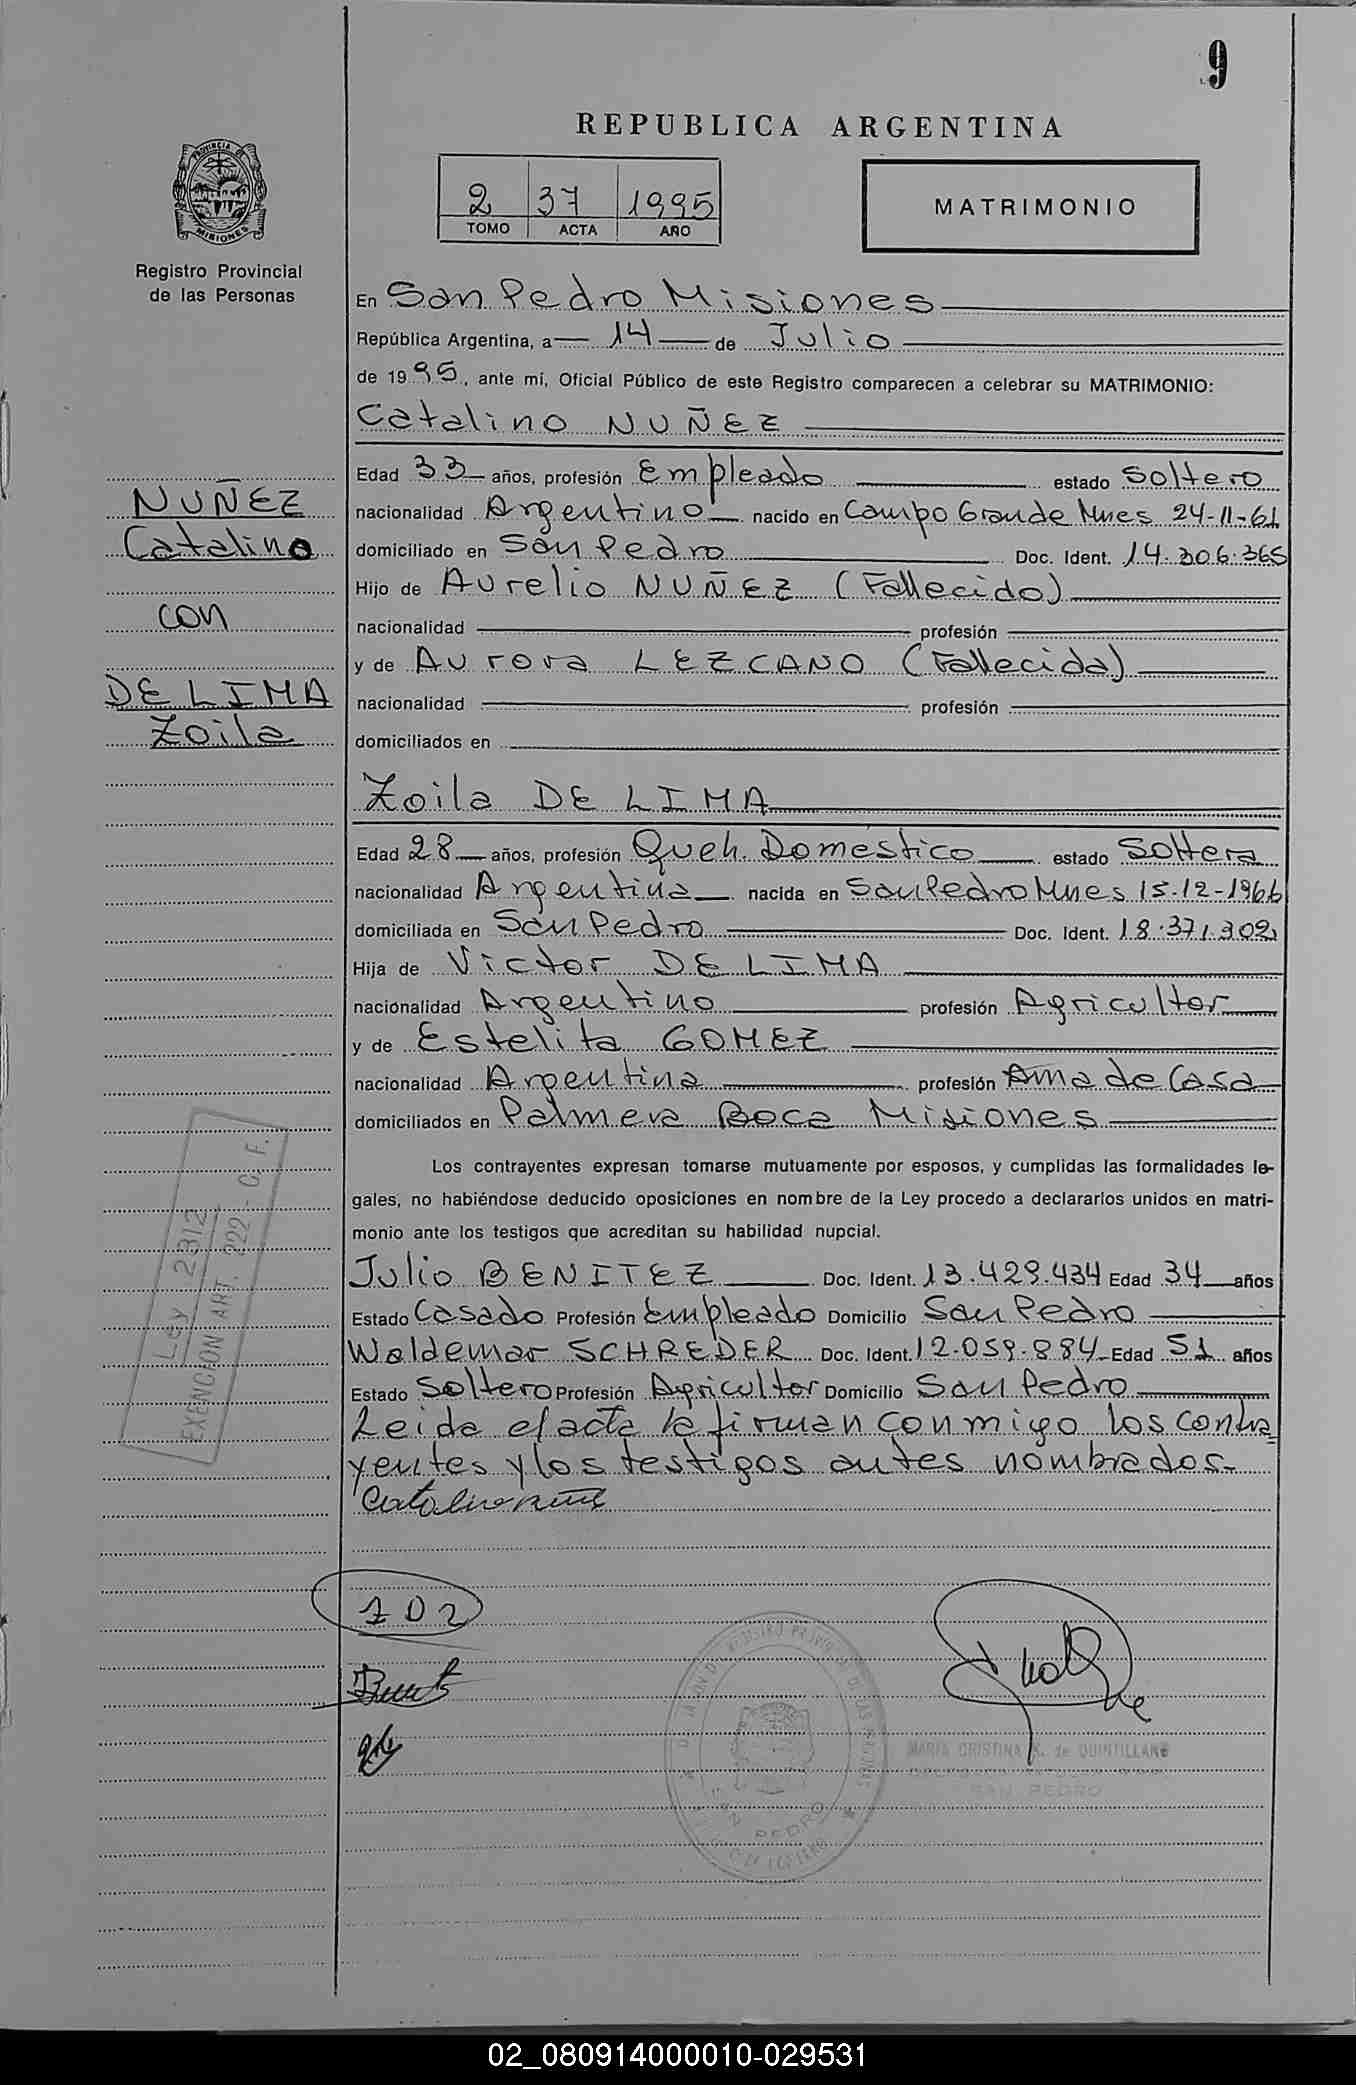 9
REPUBLICA ARGENTINA
PROVINCIA DE
MISIONES
Registro Provincial
de las Personas
2 37 1995
TOMO ACTA AÑO
MATRIMONIO
En San Pedro Misiones
República Argentina, a 14 de Julio
de 1995, ante mí, Oficial Público de este Registro comparecen a celebrar su MATRIMONIO:
Catalino NUÑEZ
Edad 33 años, profesión Empleado estado Soltero
nacionalidad Argentino nacido en Campo Grande Mnes 24-11-61
domiciliado en San Pedro Doc. Ident. 14.306.365
Hijo de Aurelio NUÑEZ (Fallecido)
nacionalidad profesión
y de Aurora LEZCANO (Fallecida)
nacionalidad profesión
domiciliados en
NUÑEZ
Catalino
con
DE LIMA
Zoila
Zoila DE LIMA
Edad 28 años, profesión Queh. Domestico estado Soltera
nacionalidad Argentina nacida en San Pedro Mnes 15-12-1966
domiciliada en San Pedro Doc. Ident. 18.371.302
Hija de Victor DE LIMA
nacionalidad Argentino profesión Agricultor
y de Estelita GOMEZ
nacionalidad Argentina profesión Ama de Casa
domiciliados en Palmera Boca Misiones
Los contrayentes expresan tomarse mutuamente por esposos, y cumplidas las formalidades le-
gales, no habiéndose deducido oposiciones en nombre de la Ley procedo a declararlos unidos en matri-
monio ante los testigos que acreditan su habilidad nupcial.
Julio BENITEZ Doc. Ident. 13.429.434 Edad 34 años
Estado Casado Profesión Empleado Domicilio San Pedro
Waldemar SCHREDER Doc. Ident. 12.059.884 Edad 51 años
Estado Soltero Profesión Agricultor Domicilio San Pedro
Leida el acta la firman conmigo los contra
yentes y los testigos antes nombrados.
Ley 2312
EXENCION ART. 222 - C. F.
102
SAN PEDRO
MARIA CRISTINA K. de QUINTILLANE
SAN PEDRO
02_080914000010-029531